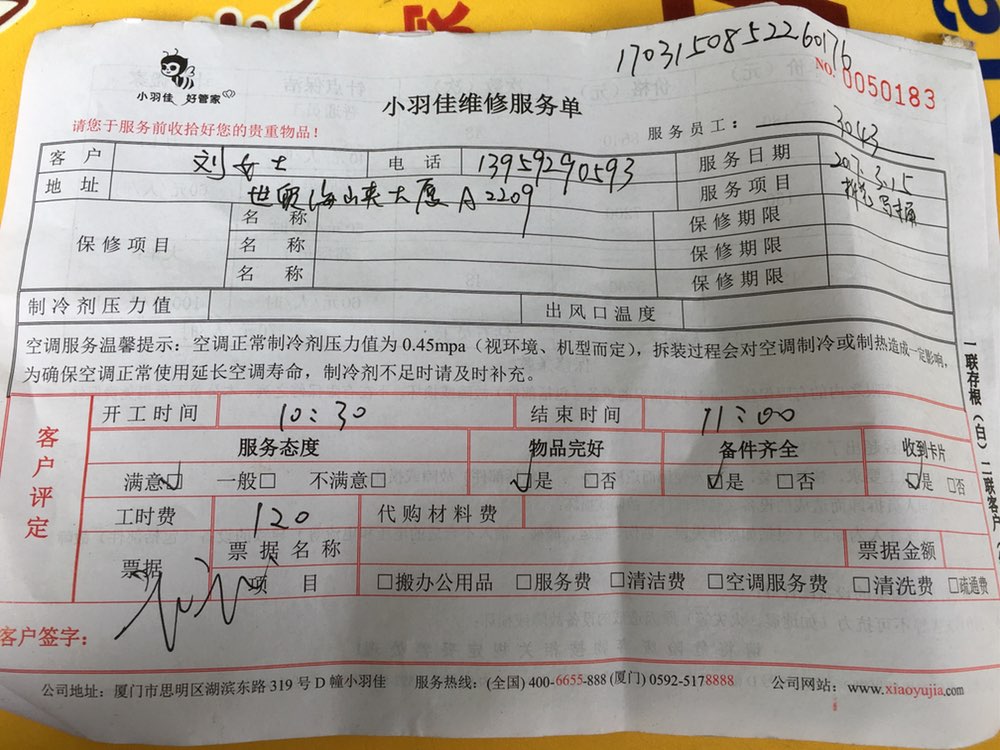 1703150852260176
NO. 0050183
小羽佳 好管家
小羽佳维修服务单
请您于服务前收拾好您的贵重物品！
服务员工： 3043
客户 刘女士 电话 13959290593 服务日期 2017.3.15
地址 世贸海山峡大厦 A2209 服务项目 拆装马桶
保修项目 名称 保修期限
名称 保修期限
名称 保修期限
制冷剂压力值 出风口温度
空调服务温馨提示：空调正常制冷剂压力值为 0.45mpa（视环境、机型而定），拆装过程会对空调制冷或制热造成一定影响，
为确保空调正常使用延长空调寿命，制冷剂不足时请及时补充。
客户评定
开工时间 10:30 结束时间 11:00
服务态度 物品完好 备件齐全 收到卡片
满意☑ 一般□ 不满意□ ☑是 □否 ☑是 □否 ☑是 □否
工时费 120 代购材料费
票据 票据名称 票据金额
项目 □搬办公用品 □服务费 □清洁费 □空调服务费 □清洗费 □疏通费
客户签字：
一联存根（白）二联客户
公司地址：厦门市思明区湖滨东路 319 号 D 幢小羽佳 服务热线：(全国) 400-6655-888 (厦门) 0592-5178888 公司网站：www.xiaoyujia.com